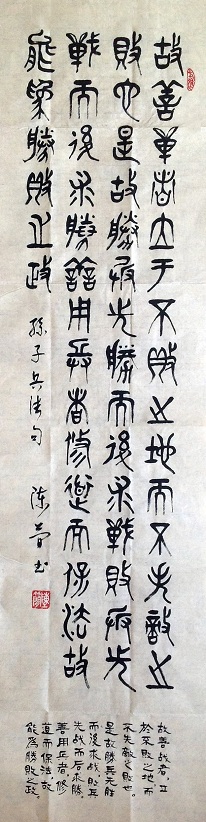 故善單者立于不敗之地而不失敵之
敗也是故勝兵先勝而後求戰敗兵先
戰而後求勝善用兵者修道而保法故
能為勝敗之政 孫子兵法句 陈 书
故善战者,立
於不败之地,而
不失敌之败也。
是故勝兵先胜
而後求战,败兵
先战而后求勝。
善用兵者,修
道而保法,故
能為勝败之政。